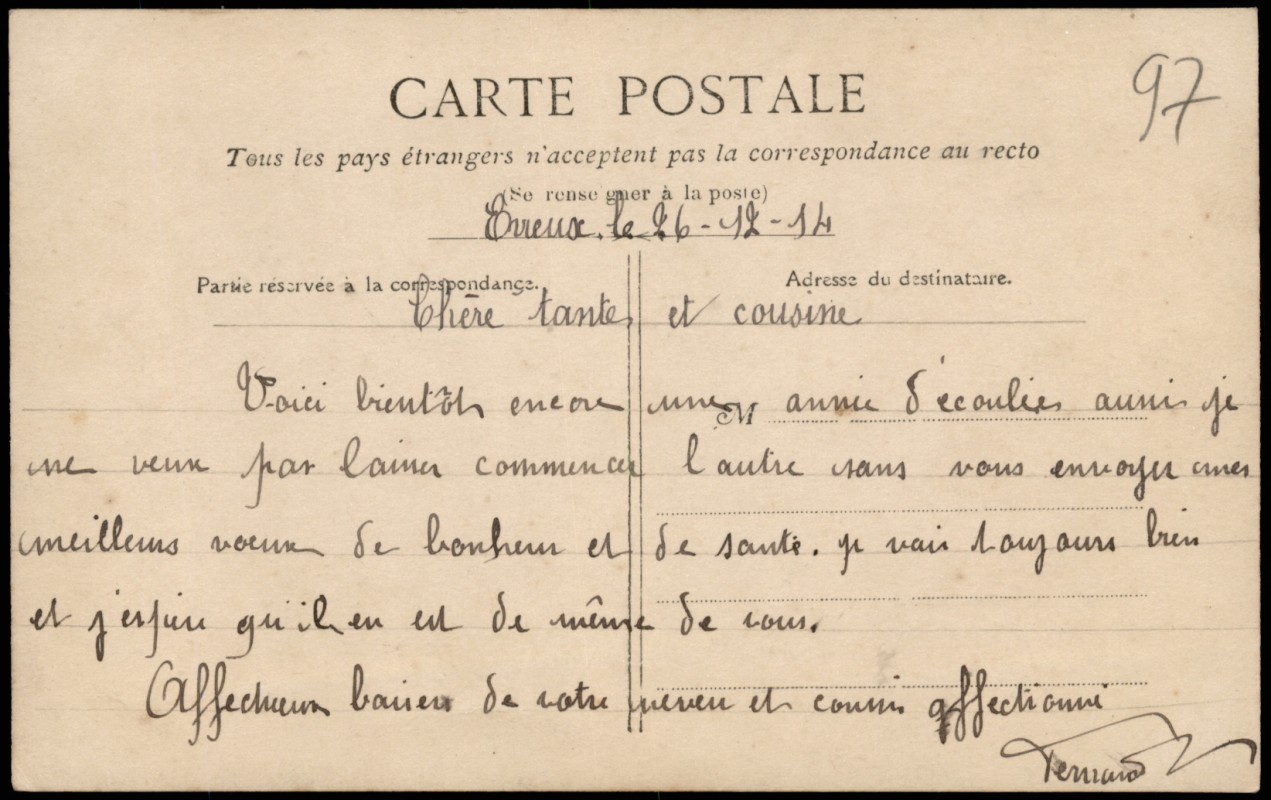 97
CARTE POSTALE
Tous les pays étrangers n'acceptent pas la correspondance au recto
(Se renseigner à la poste)
Evreux, le 26-12-14
Partie réservée à la correspondance.
Adresse du destinataire.
Chère tante et cousine
M
Voici bientôt encore une année d'écoulée aussi je
ne veux pas laisser commencer l'autre sans vous envoyer mes
meilleurs voeux de bonheur et de santé. je vais toujours bien
et j'espère qu'il en est de même de vous.
Affectueux baisers de votre neveu et cousin affectionné
Fernand